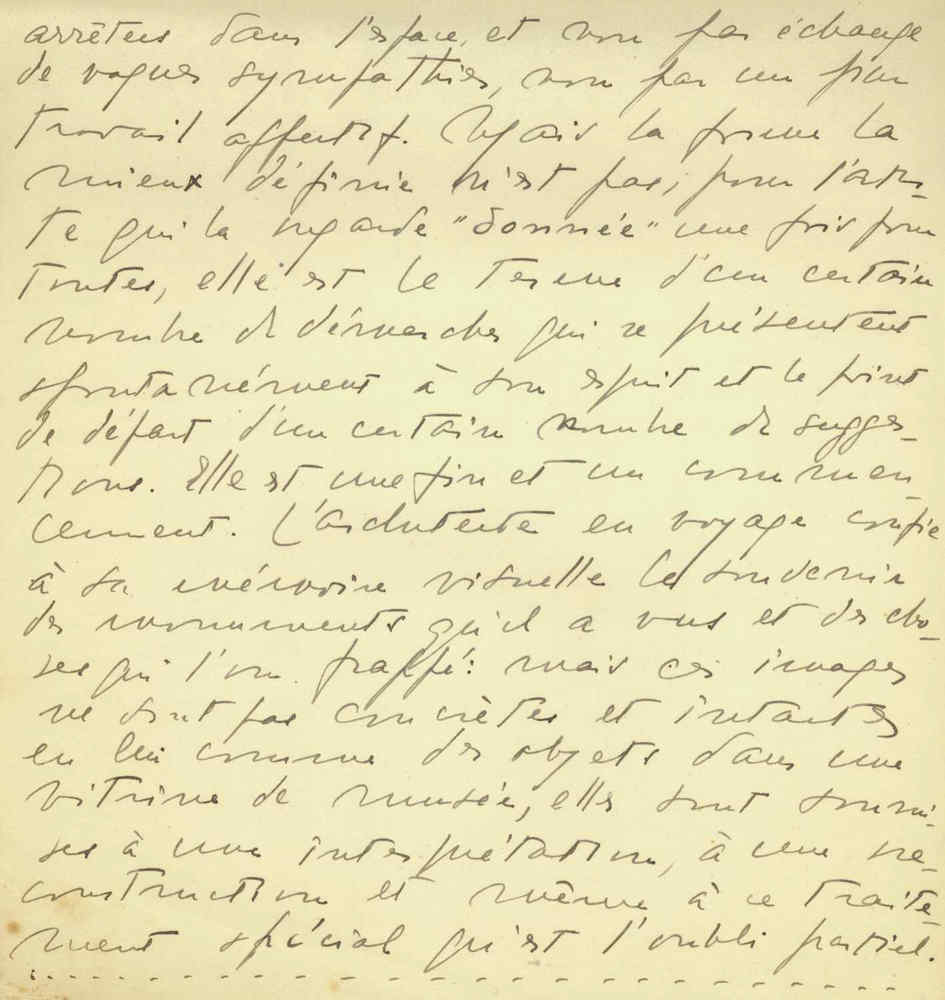 arrêtées dans l'espace, et non par échange
de vagues sympathies, non par un pur
travail affectif. Mais la forme la
mieux définie n'est pas, pour l'artis-
te qui la regarde "donnée" une fois pour
toutes, elle est le terme d'un certain
nombre de démarches qui se présentent
spontanément à son esprit et le point
de départ d'un certain nombre de sugges-
tions. Elle est une fin et un commen
cement. L'architecte en voyage confie
à sa mémoire visuelle le souvenir
des monuments qu'il a vus et des cho-
ses qui l'on frappé: mais ces images
ne sont pas concrètes et intactes
en lui comme des objets dans une
vitrine de musée, elles sont soumi-
ses à une interprétation, à une re-
construction et même à ce traite-
ment spécial qu'est l'oubli partiel.